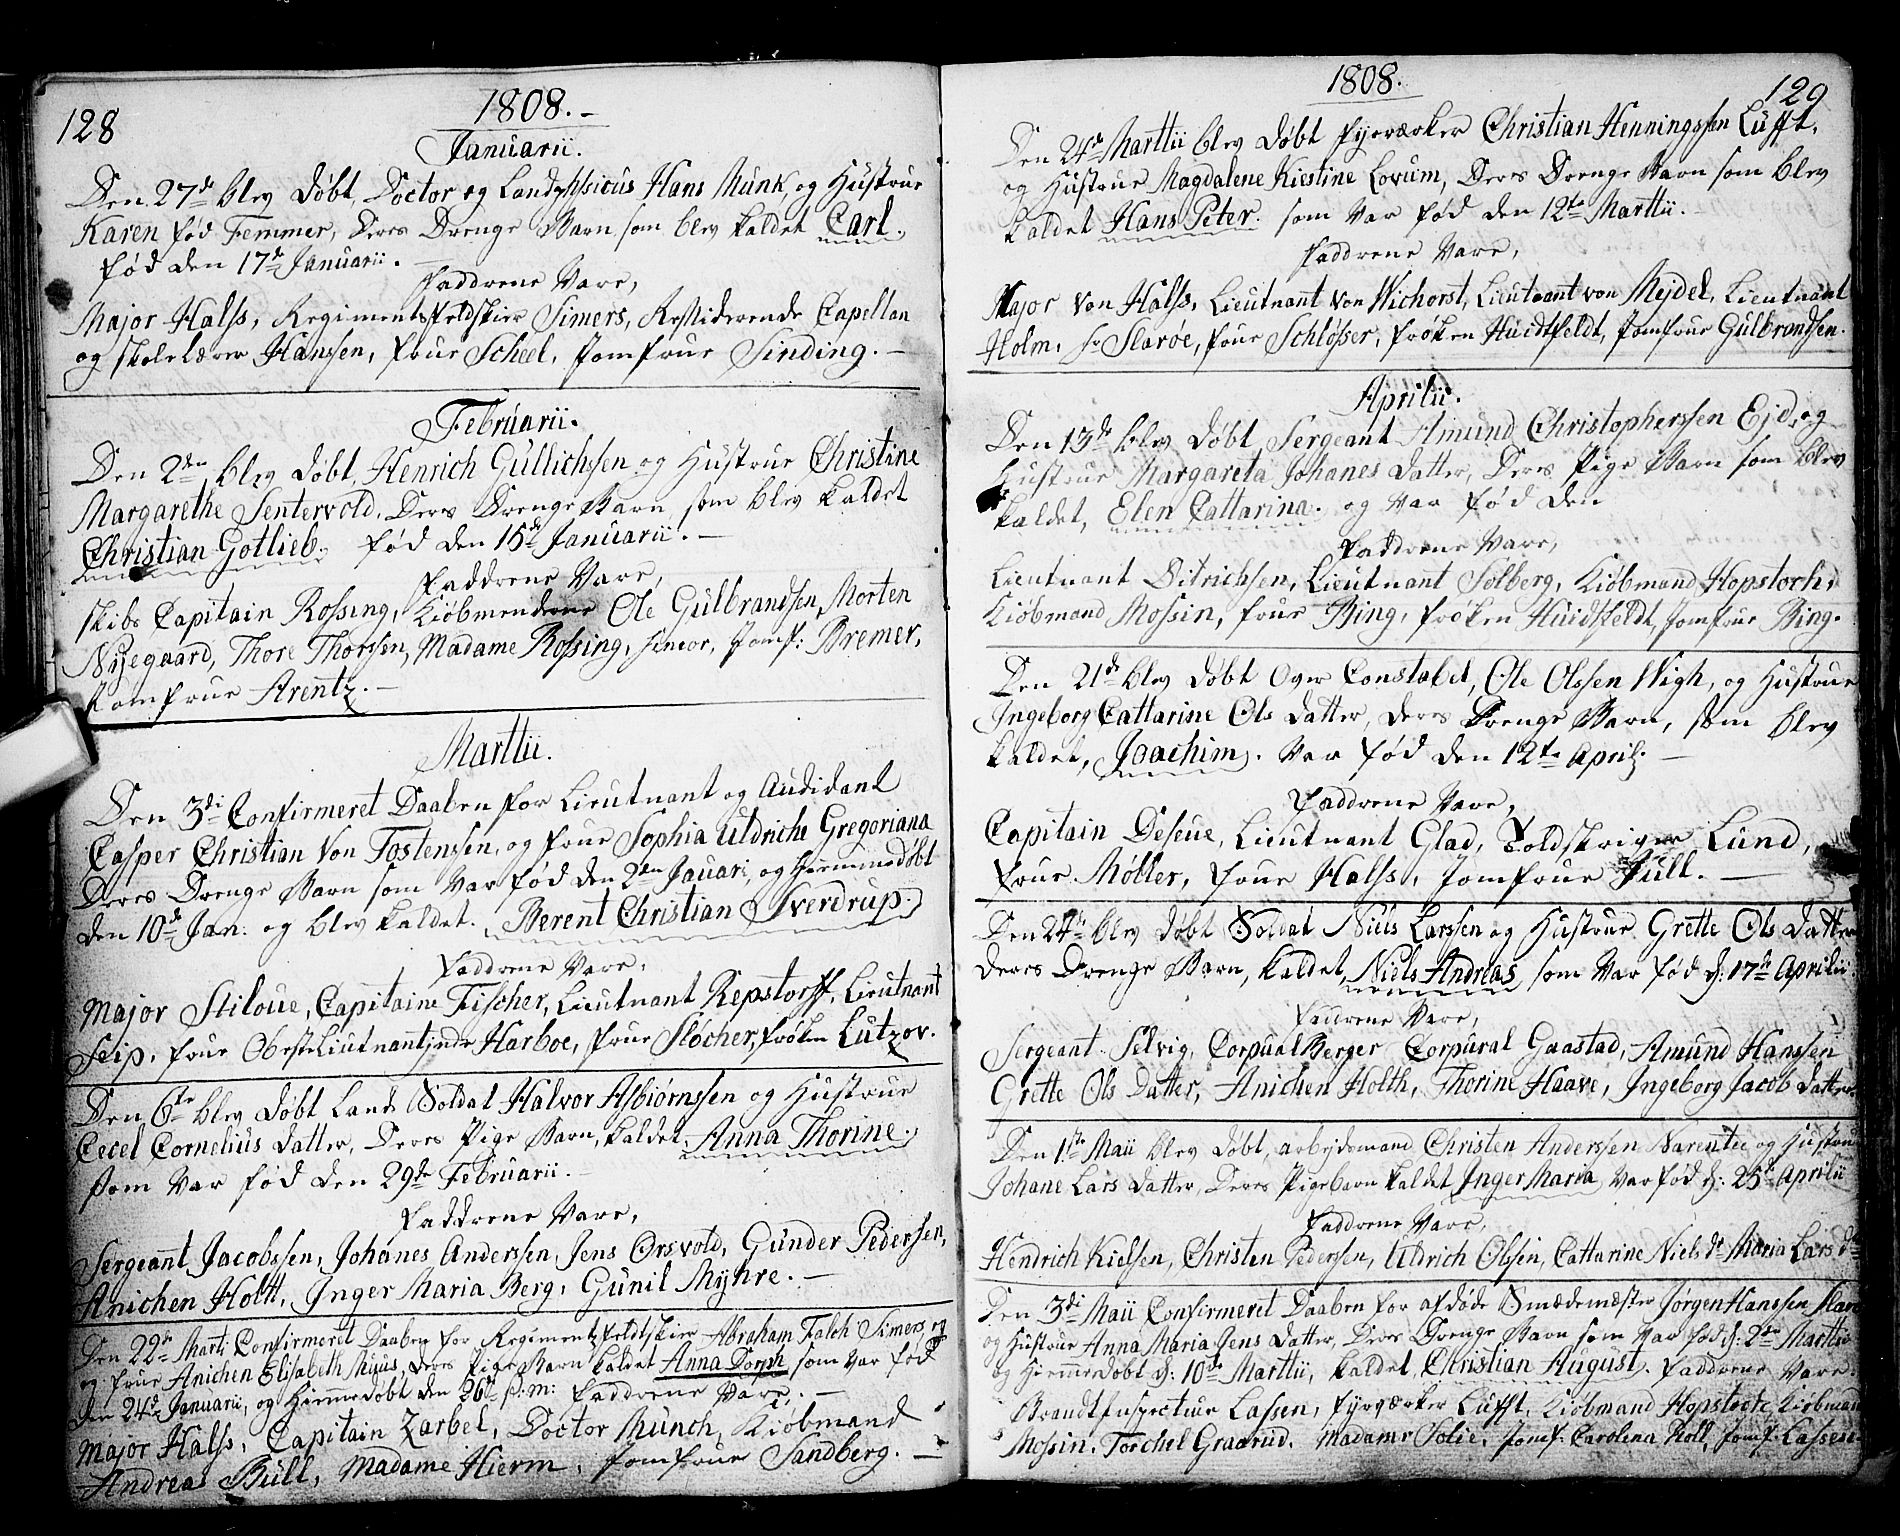 128
1808.
Januarii.
Den 27de blev døbt, Doctor og Landphsicus Hans Munk, og Hustrue
Karen fød Femmer, Deres Drenge Barn som blev kaldet Carl.
fød den 17de Januarii.
Faddrene Vare,
Major Halss, Regimentsfeldskier Simers, Residerende Capellan
og skolelærer Hanssen, frue Scheel, Jomfrue Sinding.
Februarii.
Den 2den blev døbt, Henrich Gullichssen og Hustrue Christine
Margarethe Sentervold, Deres Drenge Barn, som blev kaldet
Christian Gotlieb. fød den 15de Januarii.
Faddrene Vare,
skibs Capitain Rossing, Kiøbmendene Ole Gulbrandsen, Morten
Nyegaard, Thore Thorssen, Madame Rossing, sineor, Jomf: Bremer,
Jomfrue Arentz.
Marttii.
Den 3di Confirmeret Daaben for Lieutnant og Audidant
Casper Christian Von Tostenssen, og frue Sophia Uldriche Gregoriana
Deres Drenge Barn som Var fød den 2den Januari, og Hiemmedøbt
den 10de Jan: og blev kaldet. Berent Christian Sverdrup.
Faddrene Vare,
Major Stiloue, Capitaine Fischer, Lieutnant Repstorff, Lieutnant
Seip, frue ObersteLiutnantinde Harboe, frue Slocher, frøken Lutzov.
Den 6te blev døbt Land Soldat Halvor Asbiørnssen og Hustrue
Cecel Cornelius datter, Deres Pige Barn, kaldet. Anna Thorine.
som Var fød den 29de Februarii.
Faddrene Vare,
Sergeant Jacobssen, Johanes Anderssen, Jens Orsvold, Gunder Pedersen,
Anichen Holtt, Inger Maria Berg, Gunil Myhre.
Den 22de Marti Confirmeret Daaben for Regimentzfeldtskier Abraham Falch Simers, og
og frue Anichen Elisabeth Deres Pige Barn kaldet Anna Dorph som var fød
den 24de Januarii, og Hiemmedøbt den 26de s: m: Faddrene Vare,
Major Halss, Capitain Zarbel, Doctor Munch, Kiøbmand
Andreas Bull, Madame Hierm, Jomfrue Sandberg.
1808.
129
Den 24de Marttii blev døbt fyrværker Christian Henningssen Lufft,
og Hustrue Magdalene Kiestine Lovum, Deres Drenge Barn som blev
kaldet Hans Peter. som Var fød den 12te Marttii.
Faddrene Vare,
Major von Halss, Lieutnant von Wichorst, Lieutnant von Mejdel, Lieutnant
Holm, Hr Slarøe, frue Schløsser, frøken Huidtfeldt, Jomfrue Gulbrandsen.
Aprilii.
Den 13de blev døbt Sergeant Amund Christopherssen Ejd, og
Hustrue Margareta Johanes datter, Deres Pige Barn som blev
kaldet, Elen Cattarina. og Var fød den
Faddrene Vare,
Lieutnant Ditrichsen, Lieutnant Solberg, Kiøbmand Hopstoch,
Kiøbmand Mossin, frue Bing, frøken Huidtfeldt, Jomfrue Bing.
Den 21de blev døbt Over Constabel, Ole Olssen Wigh, og Hustrue
Ingeborg Cattarine Ols datter, Deres Drenge Barn, som blev
kaldet, Joachim. Var fød den 12te April.
Faddrene Vare,
Capitain Deseue, Lieutnant Glad, Toldskriver Lund,
frue Møller, frue Halss, Jomfrue Jull.
Den 24de blev døbt Soldat Niels Larssen og Hustrue Grette Ols datter
Deres Drenge Barn, kaldet, Niels Andreas som Var fød d: 17de Aprilii
Faddrene Vare,
Sergeant Selvig, Corpual Berger Corpural Gaastad, Amund Hanssen
Grette Ols Datter, Anichen Holth, Thorine Haave, Ingeborg Jacob datter.
Den 1ste Maii blev døbt, arbejdsmand Christen Anderssen Narentie og Hustrue
Johane Lars datter, Deres Pigebarn kaldet Inger Maria Var fød d: 25de Aprilii
Faddrene Vare,
Hendrich Kielsen, Christen Pedersen, Uldrich Olssin, Cattarine Niels dr Maria Lars dr
Den 3di Maii Confirmeret Daaben for afdøde Smædemæster Jørgen Hanssen
og Hustrue Anna Maria Jens datter, Deres Drenge Barn som Var fød d: 2den Marttii
og Hiemmedøbt d: 10de Marttii, kaldet, Christian August. Faddrene Vare.
Brandt Inspectuer Lassen, Fyrværker Lufft, Kiøbmand Hopstock, Kiøbmand
Mossin, Torchel Graarud, Madame Solie, Jomf: Carolina Roll, Jomf: Lassen